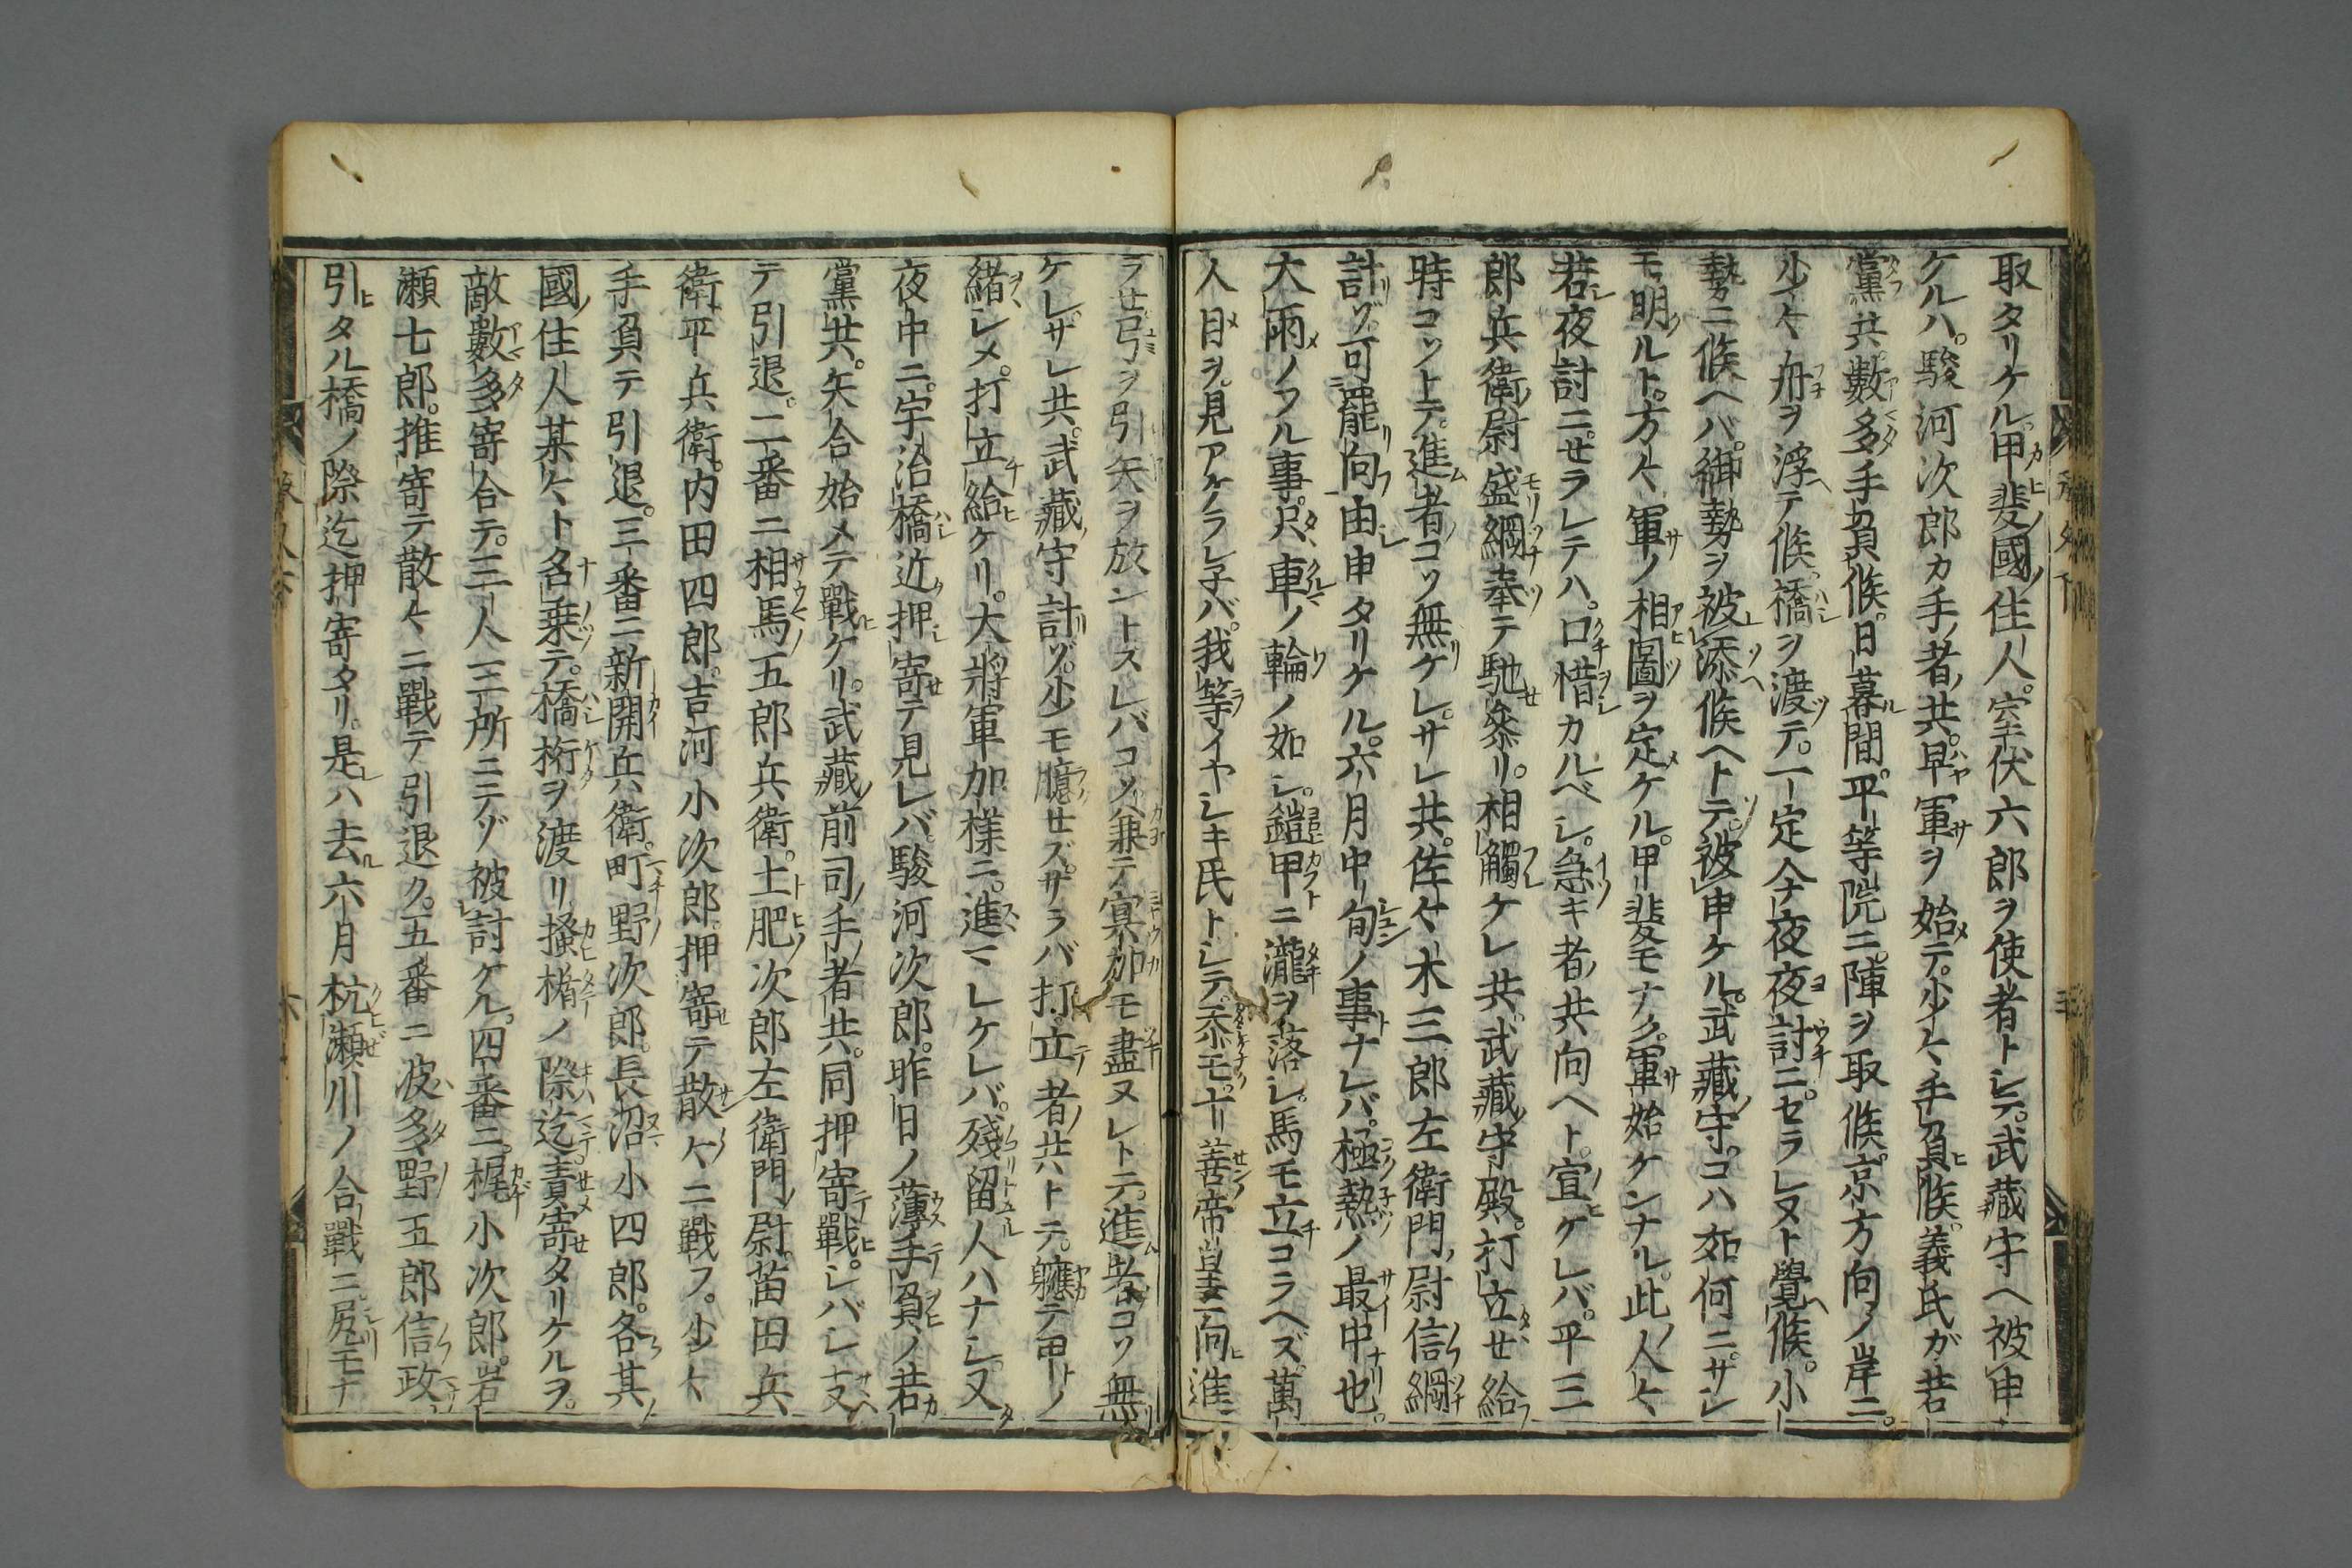 取タリケル。甲斐國住人。室伏六郎ヲ使者トシテ。武藏守ヘ被申
ケルハ。駿河次郎カ手者共。早軍ヲ始テ。少々手負候。義氏ガ若
黨共。數多手負候。日暮間。平等院ニ。陣ヲ取候。京方向ノ岸ニ。
少々舟ヲ浮テ候。橋ヲ渡テ。一定今夜夜討ニ。セラレヌト覺候。小
勢ニ候ヘバ。御勢ヲ被添候ヘトテ。被申ケル。武藏守。コハ如何ニ。サシ
モ。明ルト。方々軍ノ相圖ヲ定ケル。甲斐モナク。軍始ケンナル。此人々
若夜討ニ。セラレテハ。口惜カルベシ。急キ者共向ヘト。宣ケレバ。平三
郎兵衛尉盛綱奉テ馳參リ。相觸ケレ共。武藏守殿。打立セ給
時コソトテ。進者コソ無ケレ。サレ共。佐々木三郎左衛門尉信綱
計ゾ。可罷向由申タリケル。六月中旬ノ事ナレバ。極熱ノ最中也。
大雨ノフル事只車ノ輪ノ如シ。鎧甲ニ瀧ヲ落シ。馬モ立コラヘズ。萬
人目ヲ見アケラレ子バ。我等イヤシキ民トシテ。忝モ十善帝皇ニ向進
ラセ弓ヲ引矢ヲ放ントスレバコソ兼テ冥加モ盡ヌレトテ。進者コソ無
ケレ。サレ共。武藏守計ゾ。少モ臆セズ。サラバ打立者共トテ。軈テ甲ノ
緒シメ。打立給ケリ。大將軍加樣ニ。進マレケレバ。殘留人ハナシ。又
夜中ニ。宇治橋近押寄テ見レバ。駿河次郎。昨日ノ薄手負ノ若
黨共。矢合始メテ戰ケリ。武藏前司手者共。同押寄戰。シバシ支
テ引退。二番ニ相馬五郎兵衛。土肥次郎左衛門尉。苗田兵
衛。平兵衛。内田四郎。吉河小次郎。押寄テ散々ニ戰フ。少々
手負テ引退。三番ニ新開兵衛。町野次郎。長沼小四郎。各其
國住人某々ト名乗テ。橋桁ヲ渡リ掻楯ノ際迄責寄タリケルヲ。
敵數多寄合テ。三人一所ニテゾ被討ケル。四番ニ。梶小次郎。岩
瀬七郎。推寄テ散々ニ戰テ引退ク。五番ニ波多野五郎信政
引タル橋ノ際迄押寄タリ。是ハ去六月杭瀬川ノ合戰ニ。尻モナ